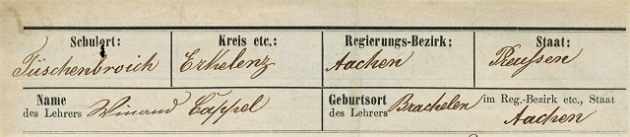 Schulort: Kreis etc.: Regierungs-Bezirk: Staat:
Tüschenbroich Erkelenz Aachen Preußen
Name des Lehrers Winand Cappel Geburtsort des Lehrers Brachelen im Reg.-Bezirk etc., Staat
Aachen